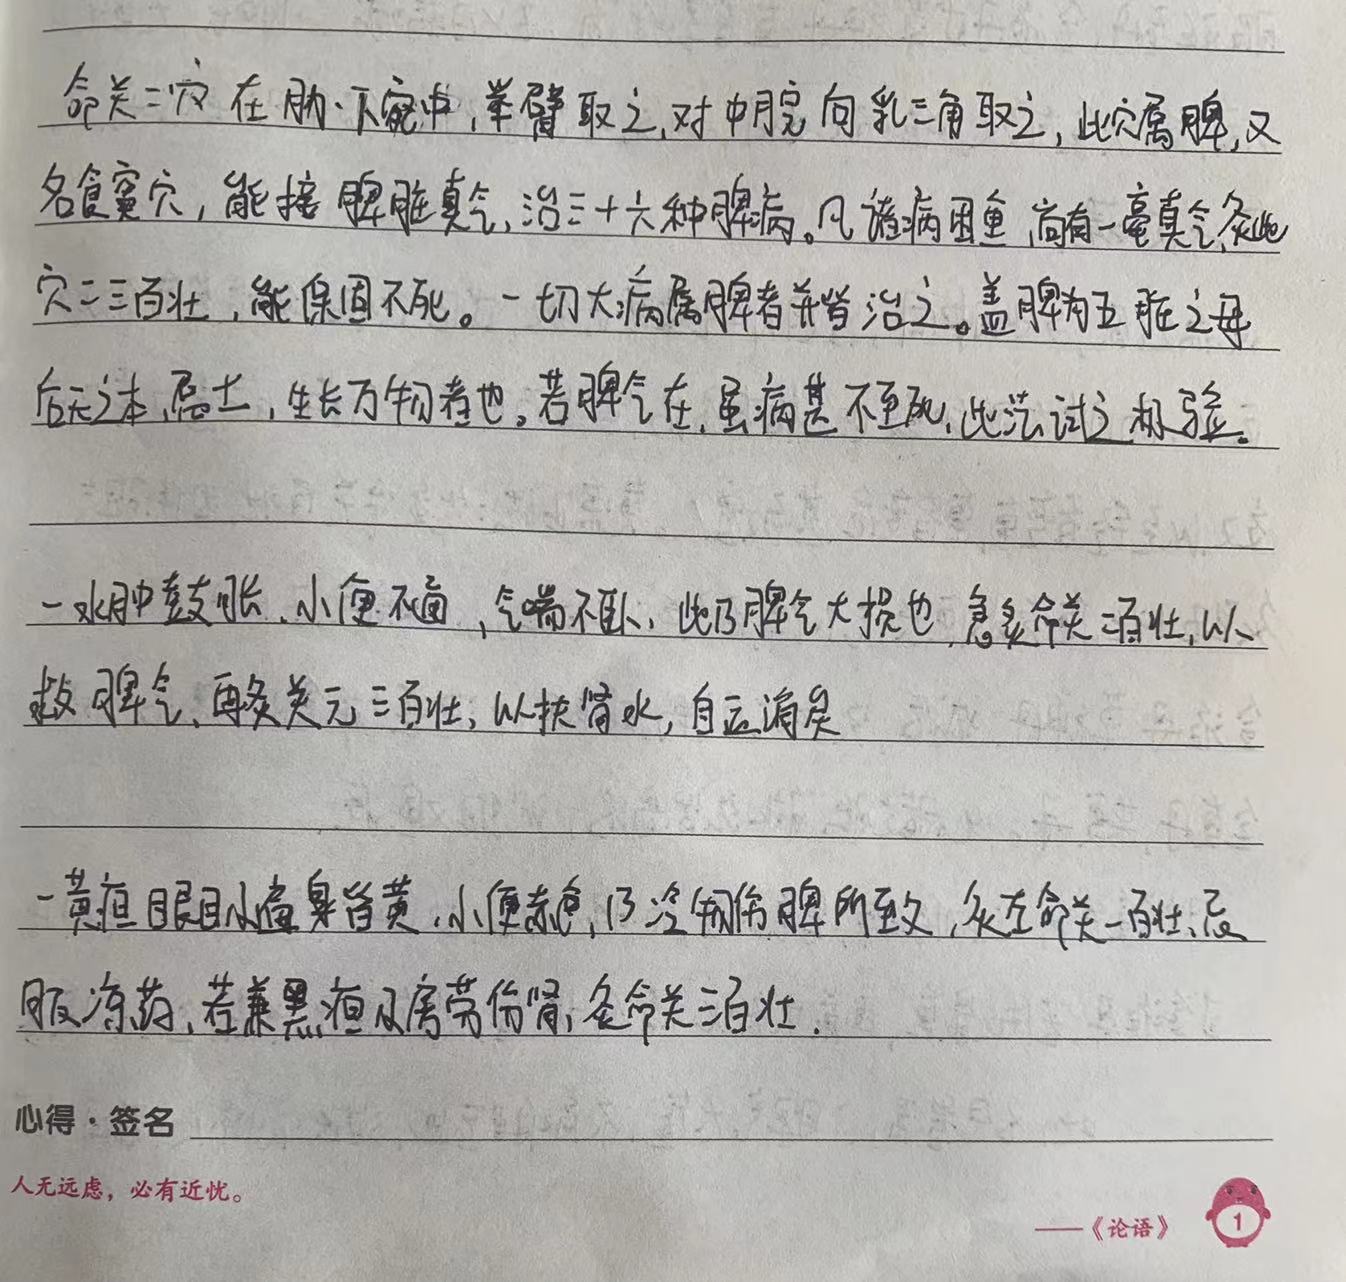 命关二穴在肋下宛中，举臂取之，对中脘向乳三角取之，此穴属脾，又
名食窦穴，能接脾脏真气，治三十六种脾病。凡诸病困重，尚有一毫真气，灸此
穴二三百壮，能保固不死。一切大病属脾者并皆治之。盖脾为五脏之母
后天之本，属土，生长万物者也。若脾气在，虽病甚不至死，此法试之极验。
一水肿鼓胀、小便不通，气喘不卧，此乃脾气大损也，急灸命关二百壮，以
救脾气、再灸关元三百壮，以扶肾水，自运消矣
一黄疸眼目小遍身皆黄，小便赤色，乃冷物伤脾所致，灸左命关一百壮、忌
服凉药，若兼黑疸及房劳伤肾，灸命关三百壮.
心得·签名
人无远虑，必有近忧。
——《论语》
1